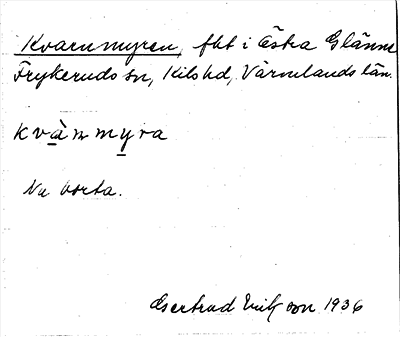 Kvarnmyren, fht i Östra Glänne
Frykeruds sn, Kils hd, Värmlands län.
kvànmyra
Nu borta.
Gertrud Ericson 1936